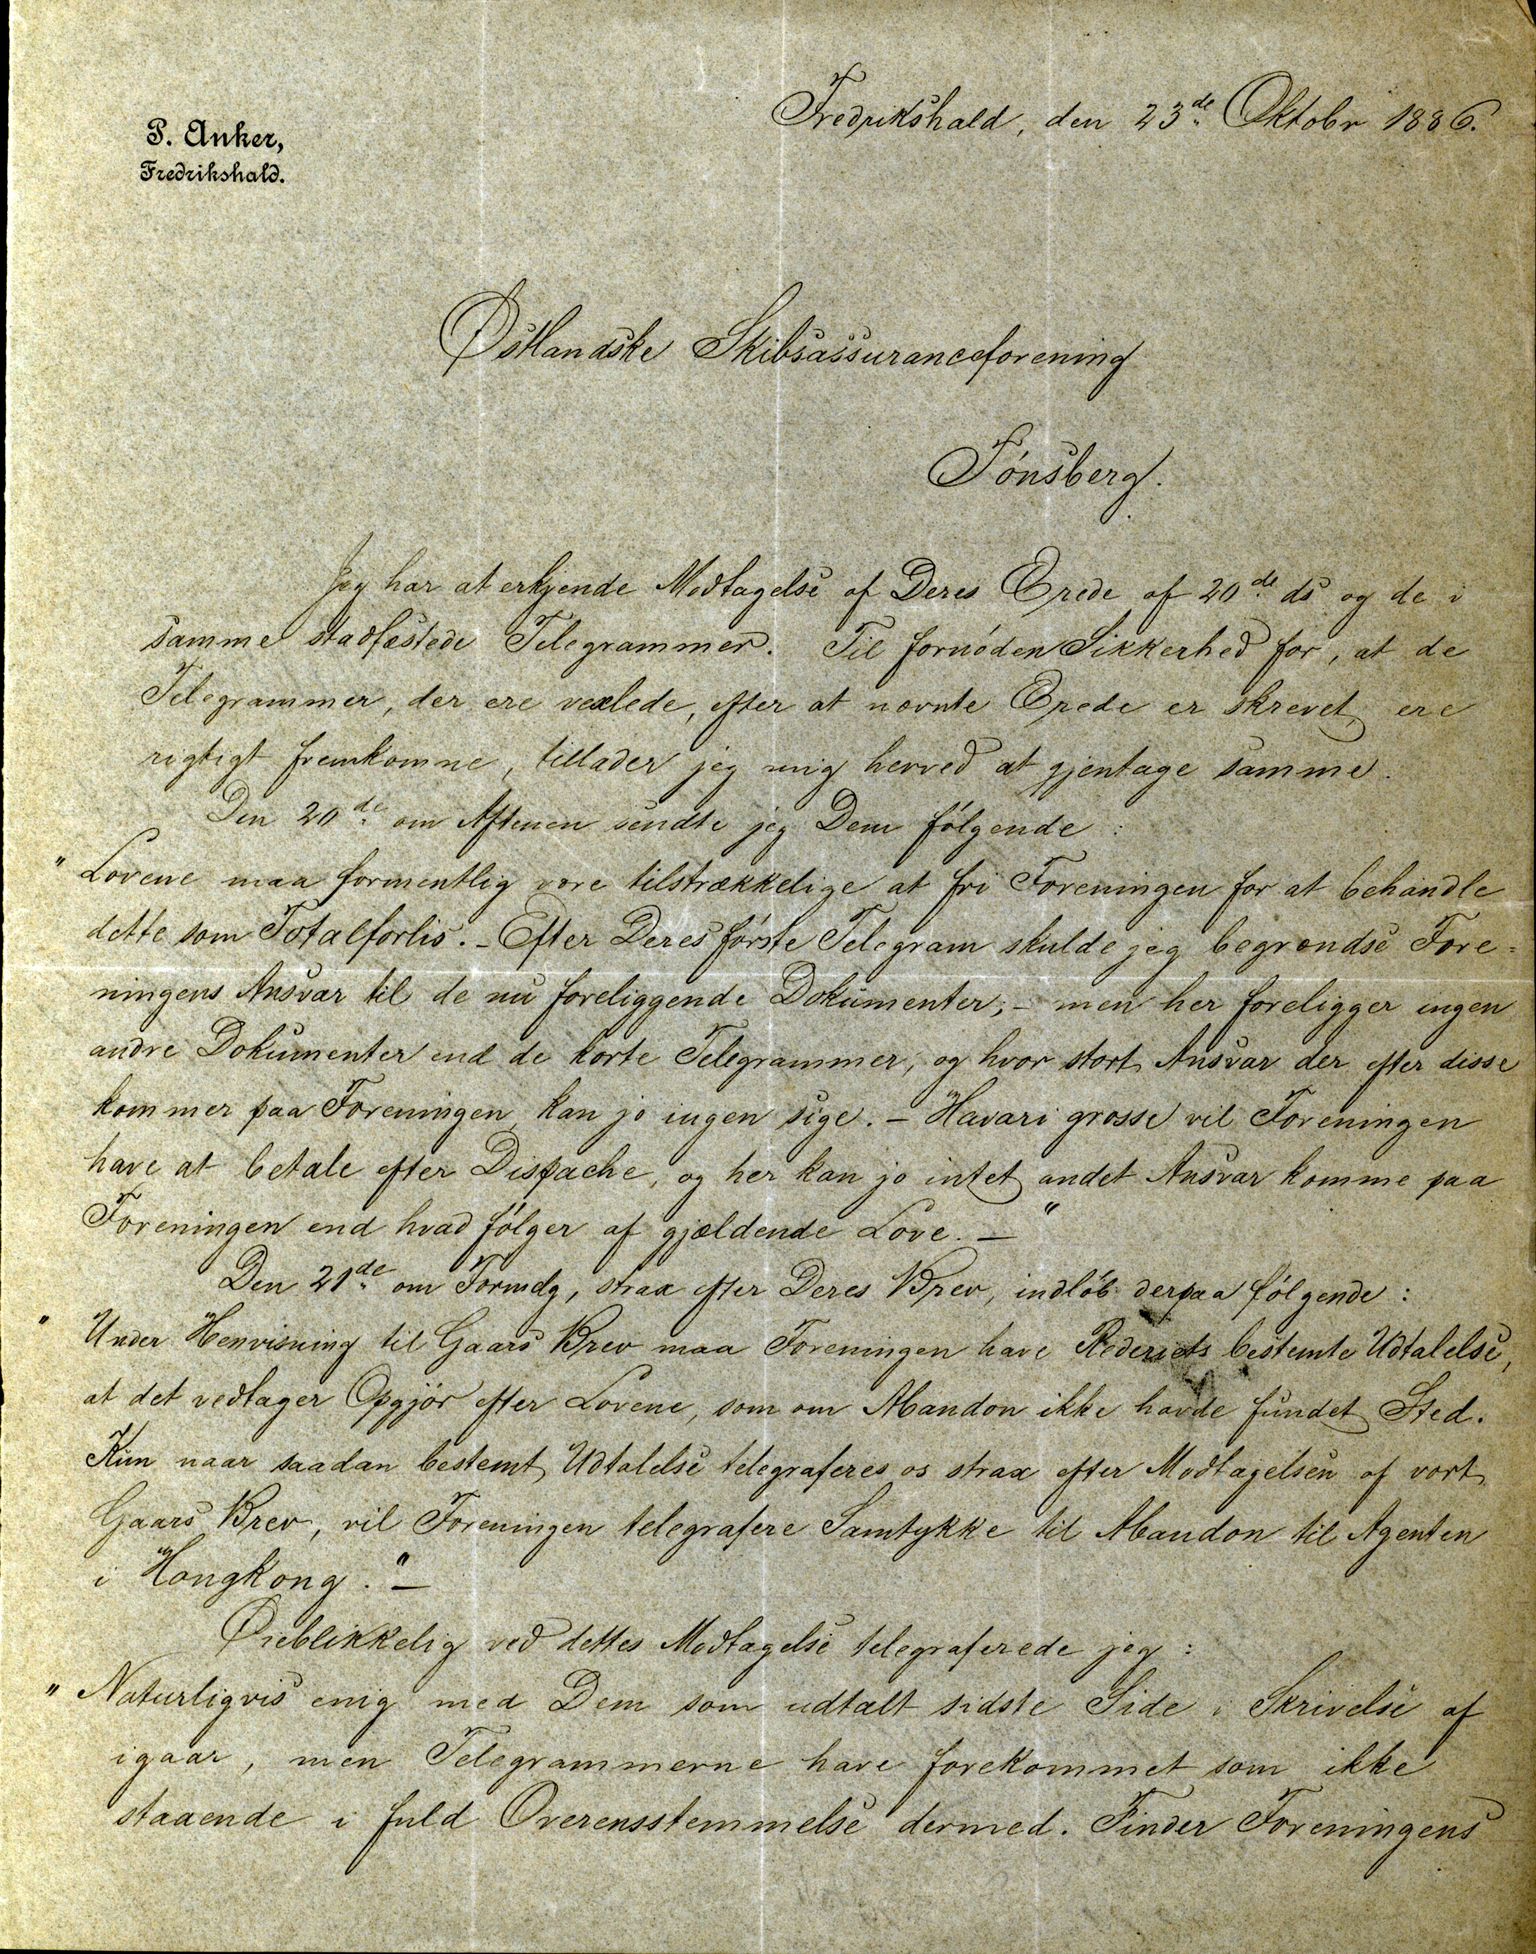 P. Anker,
Fredrikshald.
Fredrikshald, den 23de Oktobr 1886.
Østlandske Skibsassuranceforening
Tønsberg.
Jeg har at erkjende Modtagelse af Deres Ærede af 20de ds og de i
samme stadfæstede Telegrammer. Til fornøden Sikkerhed for, at de
Telegrammer, der ere vexlede, efter at nævnte Ærede er skrevet, ere
rigtigt fremkomne, tillader jeg mig herved at gjentage samme.
Den 20de om Aftenen sendte jeg Dem følgende:
"Lovene maa formentlig være tilstrækkelige at fri Foreningen for at behandle
dette som Totalforlis. - Efter Deres første Telegram skulde jeg begrændse Fore=
ningens Ansvar til de nu foreliggende Dokumenter; - men her foreligger ingen
andre Dokumenter end de korte Telegrammer, og hvor stort Ansvar der efter disse
kommer paa Foreningen, kan jo ingen sige. - Havari grosse vil Foreningen
have at betale efter Dispache, og her kan jo intet andet Ansvar komme paa
Foreningen end hvad følger af gjældende Love. - "
Den 21de om Formdg, strax efter Deres Brev, indløb derpaa følgende:
"Under Henvisning til Gaars Brev maa Foreningen have Rederiets bestemte Udtalelse,
at det vedtager Opgjør efter Lovene, som om Abandon ikke havde fundet Sted.
Kun naar saadan bestemt Udtalelse telegraferes os strax efter Modtagelsen af vort
Gaars Brev, vil Foreningen telegrafere Samtykke til Abandon til Agenten
i Hongkong." -
Øieblikkelig ved dettes Modtagelse telegraferede jeg:
"Naturligvis enig med Dem som udtalt sidste Side i Skrivelse af
igaar, men Telegrammerne have forekommet som ikke
staaende i fuld Overensstemmelse dermed. Finder Foreningens